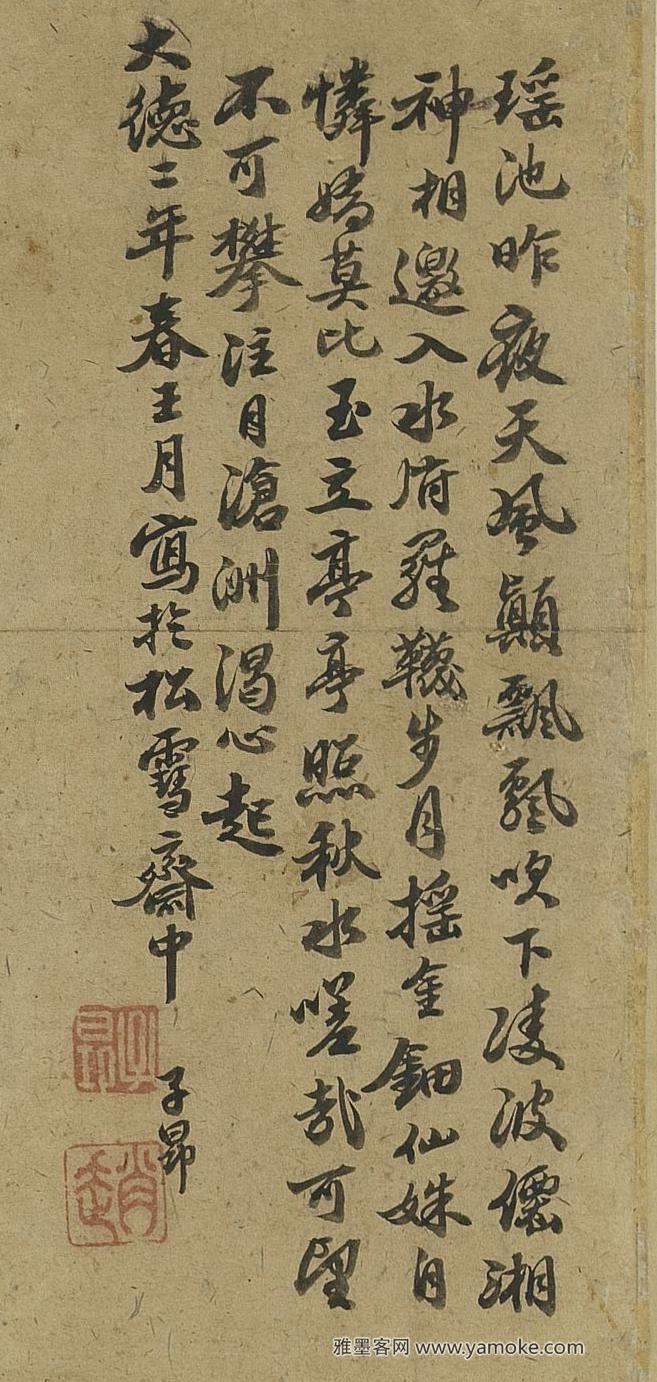 瑶池昨夜天風顛飄飄吹下凌波僊湘
神相邀入水府羅韈步月摇金鈿仙姝自
憐嬌莫比玉立亭亭照秋水嗟哉可望
不可攀注目滄洲渴心起
大德二年春王月寫於松雪齋中 子昂
子昂
趙
雅墨客网 www.yamoke.com